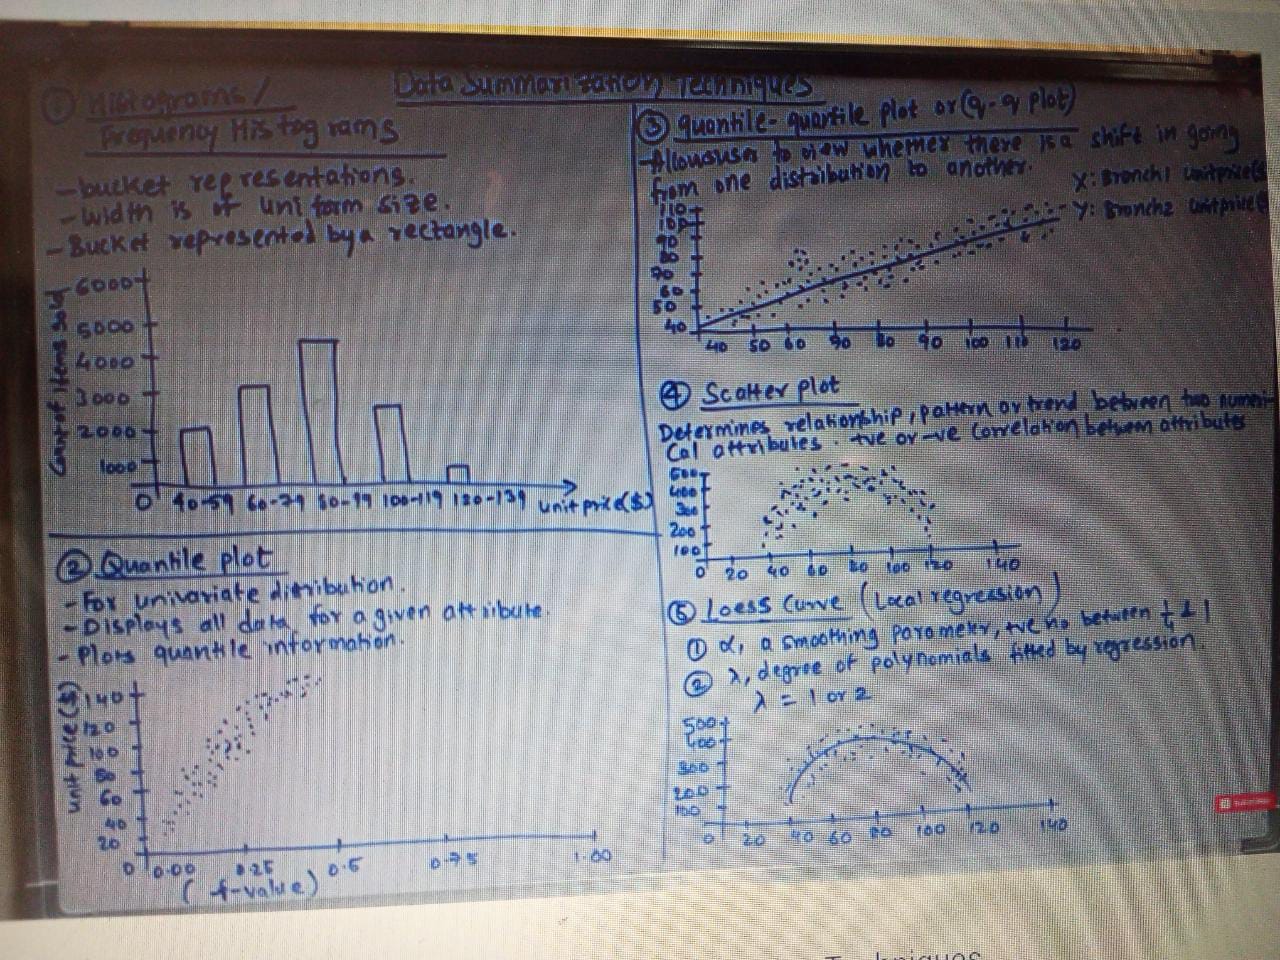 Data Summarization Techniques
① Histograms/
Frequency Histograms
- bucket representations.
- width is of uniform size.
- Bucket represented by a rectangle.
Count of items sold
6000
5000
4000
3000
2000
1000
0 40-59 60-79 80-99 100-119 120-139 unit price($)
② Quantile plot
- For univariate distribution.
- Displays all data for a given attribute.
- Plots quantile information.
unit price($)
140
120
100
80
60
40
20
0 0.00 0.25 0.5 0.75 1.00
(f-value)
③ quantile-quantile plot or (q-q plot)
- Allows user to view whether there is a shift in going
from one distribution to another.
X: Branch1 unitprice($
Y: Branch2 unitprice($
110
100
90
80
70
60
50
40
40 50 60 90 80 90 100 110 120
④ Scatter plot
Determines relationship, pattern or trend between two numeri-
cal attributes. +ve or -ve correlation between attributes
500
400
300
200
100
0 20 40 60 80 100 120 140
⑤ Loess Curve (Local regression)
① α, a smoothing parameter, +ve no between ¼ & 1
② λ, degree of polynomials fitted by regression.
λ = 1 or 2
500
400
300
200
100
0 20 40 60 80 100 120 140